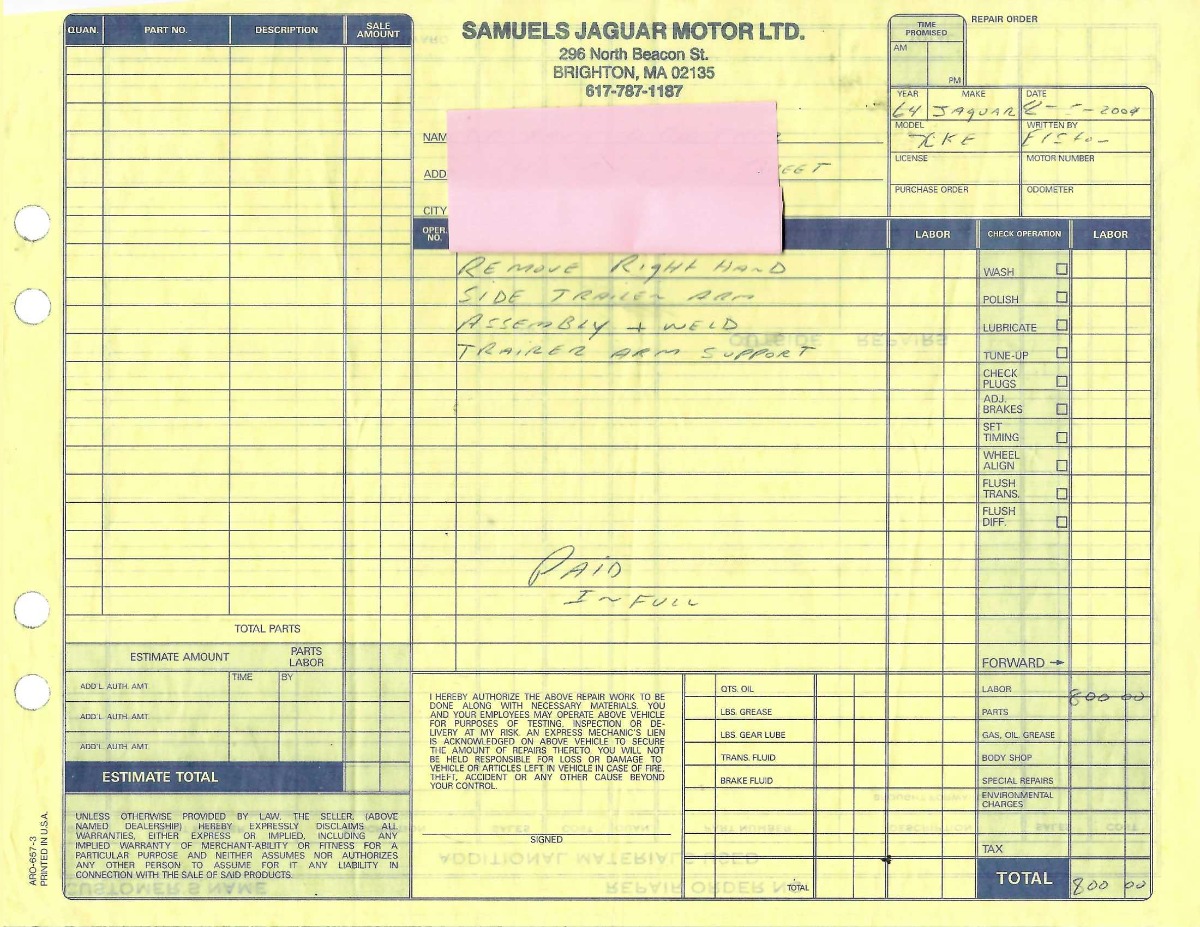 QUAN. PART NO. DESCRIPTION SALE AMOUNT
SAMUELS JAGUAR MOTOR LTD.
296 North Beacon St.
BRIGHTON, MA 02135
617-787-1187
TIME PROMISED
AM
PM
REPAIR ORDER
YEAR MAKE DATE
64 JAGUAR 2004
MODEL WRITTEN BY
XKE
LICENSE MOTOR NUMBER
PURCHASE ORDER ODOMETER
NAM
ADD
CITY
OPER. NO.
LABOR CHECK OPERATION LABOR
REMOVE Right HAND
SIDE TRAILER ARM
ASSEMBLY + WELD
TRAILER ARM SUPPORT
WASH
POLISH
LUBRICATE
TUNE-UP
CHECK PLUGS
ADJ. BRAKES
SET TIMING
WHEEL ALIGN
FLUSH TRANS.
FLUSH DIFF.
PAID
IN FULL
FORWARD →
TOTAL PARTS
ESTIMATE AMOUNT PARTS LABOR
TIME BY
ADD'L. AUTH. AMT.
ADD'L. AUTH. AMT.
ADD'L. AUTH. AMT.
ESTIMATE TOTAL
UNLESS OTHERWISE PROVIDED BY LAW, THE SELLER, (ABOVE
NAMED DEALERSHIP) HEREBY EXPRESSLY DISCLAIMS ALL
WARRANTIES, EITHER EXPRESS OR IMPLIED, INCLUDING ANY
IMPLIED WARRANTY OF MERCHANT-ABILITY OR FITNESS FOR A
PARTICULAR PURPOSE AND NEITHER ASSUMES NOR AUTHORIZES
ANY OTHER PERSON TO ASSUME FOR IT ANY LIABILITY IN
CONNECTION WITH THE SALE OF SAID PRODUCTS.
I HEREBY AUTHORIZE THE ABOVE REPAIR WORK TO BE
DONE ALONG WITH NECESSARY MATERIALS. YOU
AND YOUR EMPLOYEES MAY OPERATE ABOVE VEHICLE
FOR PURPOSES OF TESTING, INSPECTION OR DE-
LIVERY AT MY RISK. AN EXPRESS MECHANIC'S LIEN
IS ACKNOWLEDGED ON ABOVE VEHICLE TO SECURE
THE AMOUNT OF REPAIRS THERETO. YOU WILL NOT
BE HELD RESPONSIBLE FOR LOSS OR DAMAGE TO
VEHICLE OR ARTICLES LEFT IN VEHICLE IN CASE OF FIRE,
THEFT, ACCIDENT OR ANY OTHER CAUSE BEYOND
YOUR CONTROL.
SIGNED
QTS. OIL
LBS. GREASE
LBS. GEAR LUBE
TRANS. FLUID
BRAKE FLUID
TOTAL
LABOR 800 00
PARTS
GAS, OIL, GREASE
BODY SHOP
SPECIAL REPAIRS
ENVIRONMENTAL CHARGES
TAX
TOTAL 800 00
ARO-657-3
PRINTED IN U.S.A.